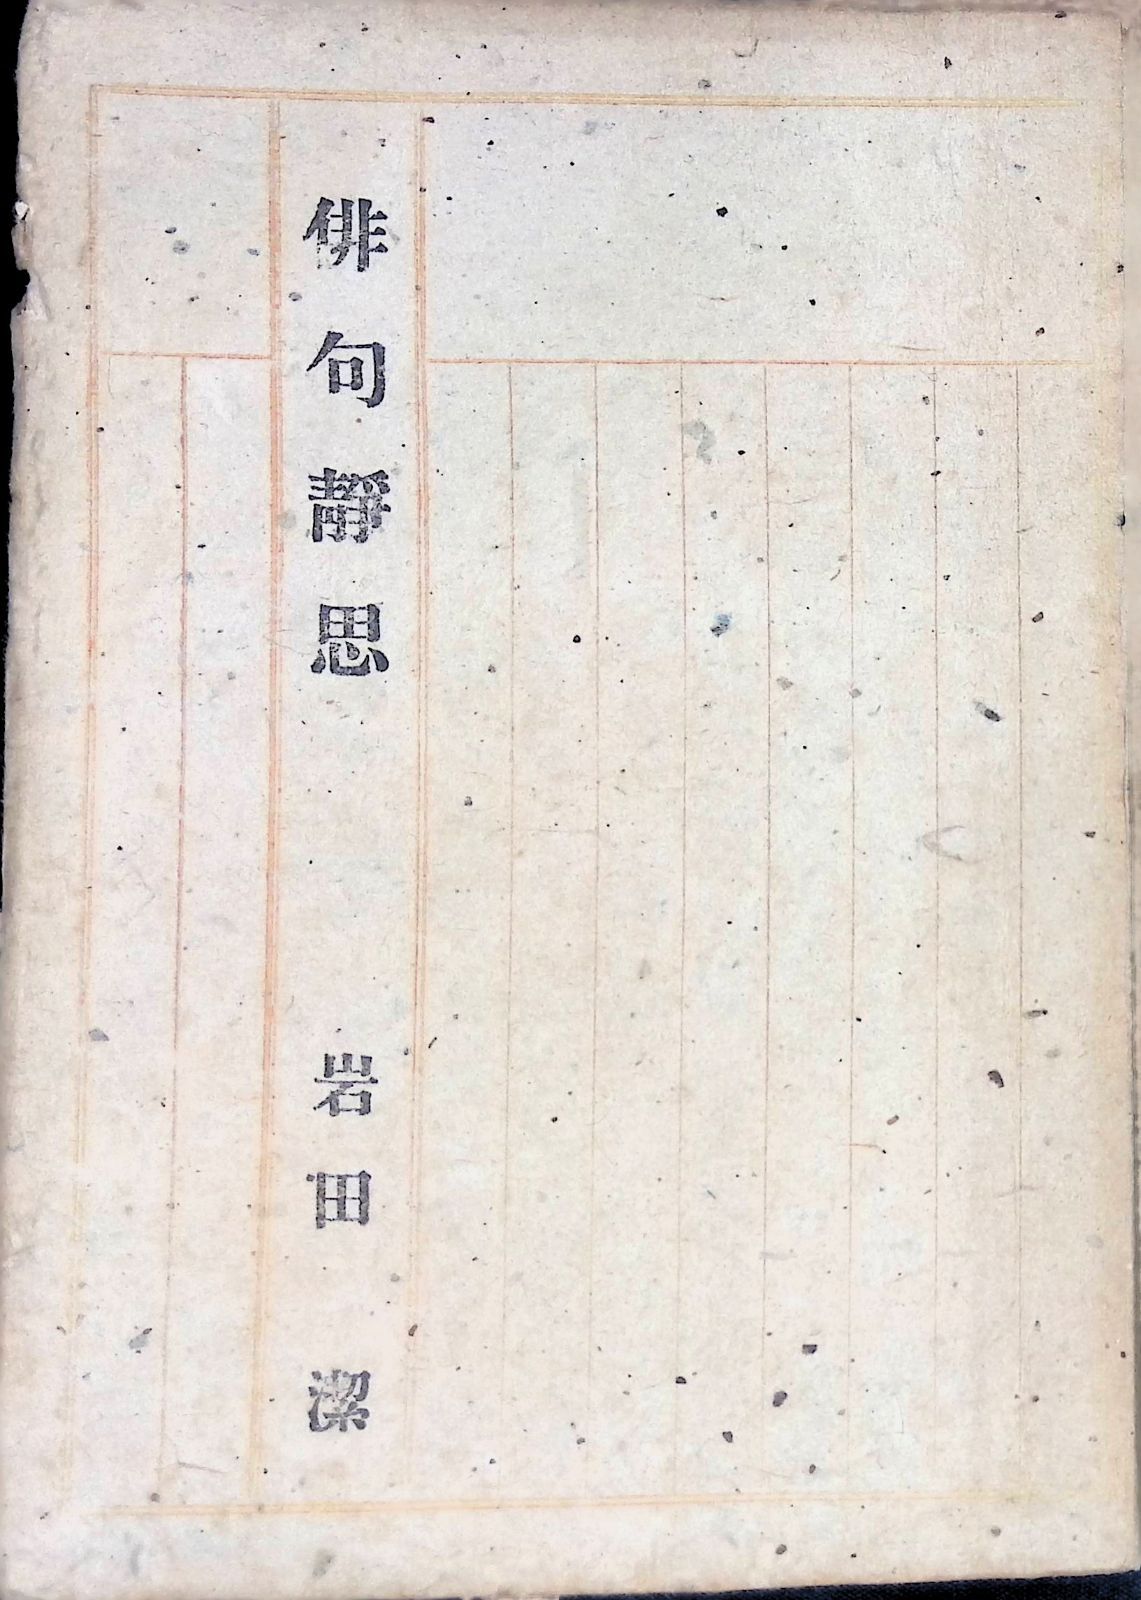 俳句靜思　岩田潔